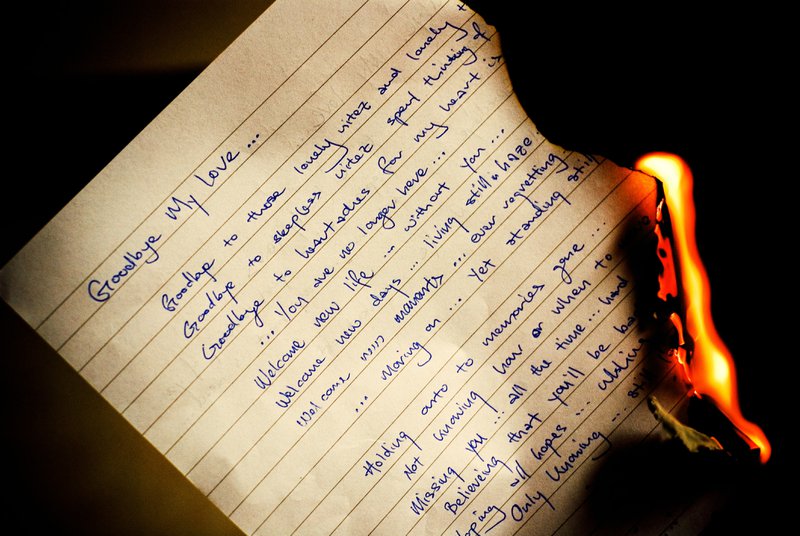 Goodbye My Love...
Goodbye to those lonely nitez and lonely
Goodbye to sleepless nitez spend thinking of
Goodbye to heartaches for my heart is
... You are no longer here...
Welcome new life ... without you ...
Welcome new days ... living still a haze
Welcome moments ... ever regretting
... Moving on ... Yet standing still
Holding onto to memories gone ...
Not knowing how or when to
Missing you ... all the time ... hard
Believeing that you'll be
all hopes ...
Only knowing ...